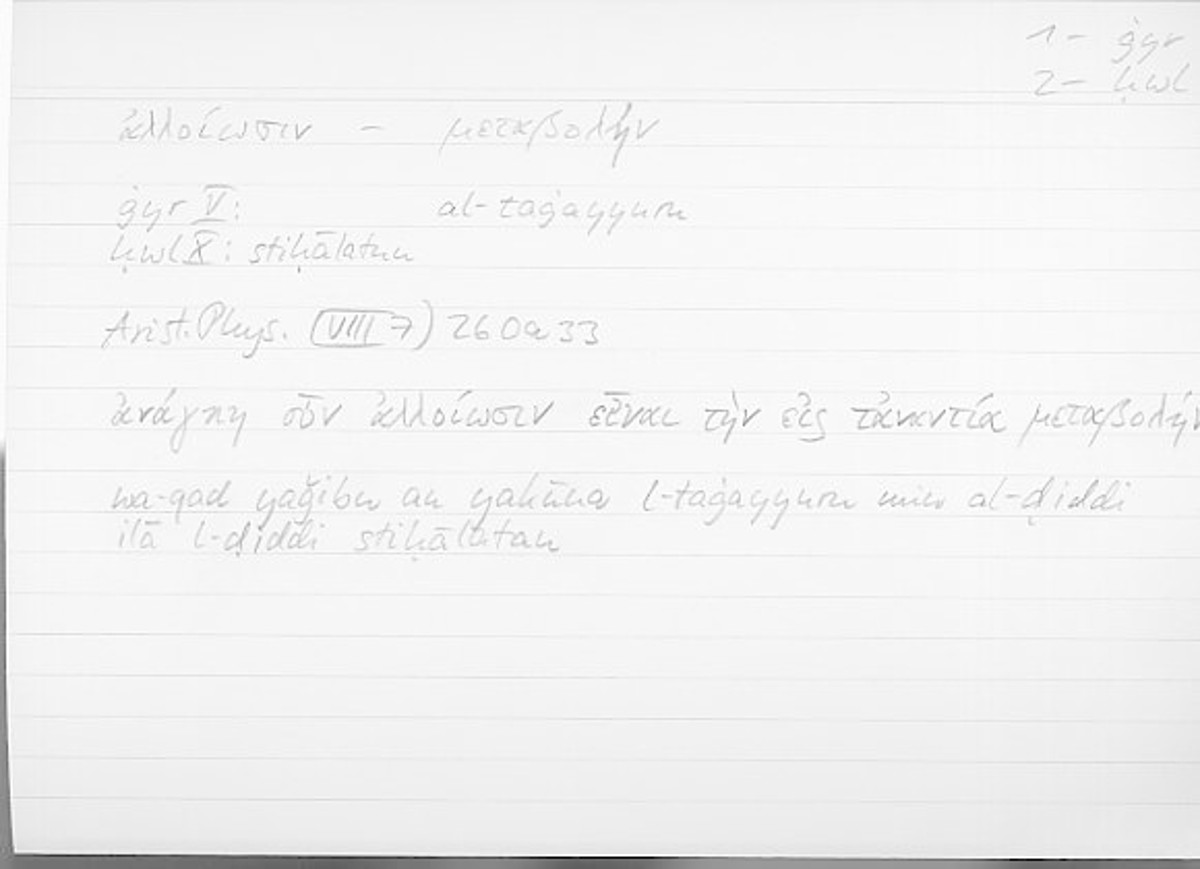 1- ġyr
2- ḥwl
ἀλλοίωσιν - μεταβολήν
ġyr V: al-taġayyuru
ḥwl X: stiḥālatun
Arist. Phys. (VIII 7) 260a33
ἀνάγκη οὖν ἀλλοίωσιν εἶναι τὴν εἰς τἀναντία μεταβολήν
wa-qad yaǧibu an yakūna l-taġayyuru min al-ḍiddi
ilā l-ḍiddi stiḥālatan